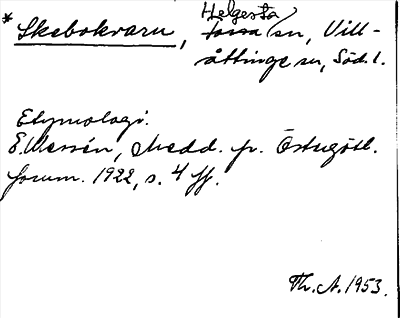 * Skebokvarn, Helgesta sn, Vill-
åttinge sn, Söd.l.
Etymologi.
E. Wessén, Medd. fr. Östergötl.
fornm. 1922, s. 4 ff.
Th. A. 1953.